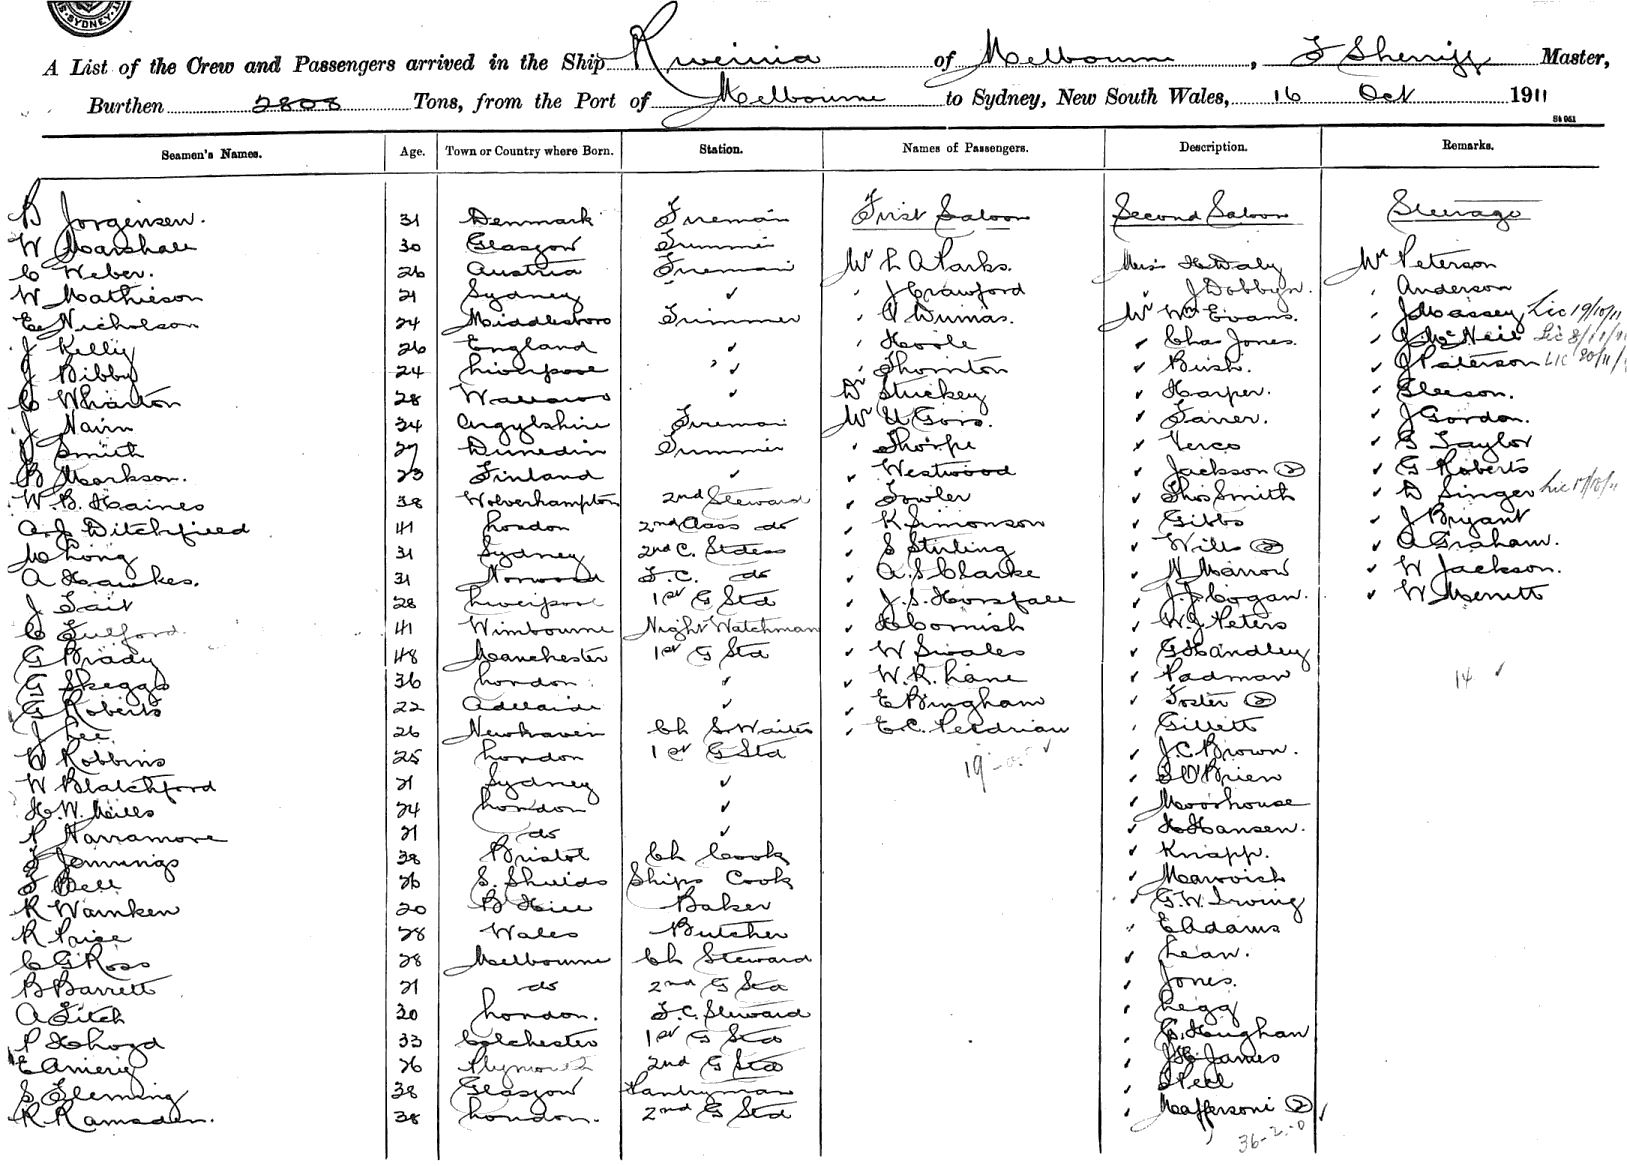 SYDNEY
A List of the Crew and Passengers arrived in the Ship Riverina of Melbourne, F Sherriff Master,
Burthen 2808 Tons, from the Port of Melbourne to Sydney, New South Wales, 16 Oct 1911
St 961
Seamen's Names. Age. Town or Country where Born. Station. Names of Passengers. Description. Remarks.
B Jorgensen. 31 Denmark Fireman First Saloon Second Saloon Steerage
W Marshall 30 Glasgow Trimmer
C Weber. 26 Austria Fireman Mr L A Parks. Miss H Daly Mr Peterson
W Mathieson 21 Sydney ✓ J Crawford J Dobbyn. Anderson
E Nicholson 24 Middlesboro Trimmer Dumas. Mr Wm Evans. J Massey Lic 19/10/11
J Kelly 26 England ✓ Hoole ✓ Chas Jones. J McNeil Lic 8/11/11
J Bibby 24 Liverpool ✓ Thornton ✓ Bush. ✓ J Paterson Lic 20/11/
C Wharton 28 ✓ Dr Stuckey ✓ Harper. ✓ Gleeson.
J Nairn 34 Argylshire Fireman Mr Gors. ✓ Farrer. ✓ J Gordon.
Smith 27 Dunedin Trimmer Thorpe ✓ Verco ✓ G Taylor
B Markson. 23 Finland ✓ ✓ Westwood ✓ Jackson 2 ✓ G Roberts
W. B. Haines 38 Wolverhampton 2nd Steward ✓ Fowler ✓ Thos Smith ✓ D Singer Lic 17/10/11
A J Ditchfield 41 London 2nd Class do ✓ K Simonson ✓ Gibbs ✓ J Bryant
M Long 31 Sydney 2nd C. Stdess ✓ S Stirling ✓ Wills 2 ✓ A Graham.
A Hawkes. 31 Norwood F. C. do ✓ A. S. Clarke ✓ N Marrow ✓ W Jackson.
J Tait 28 Liverpool 1st G Std ✓ J. S. Horsfall ✓ J. J. Cogan. ✓ W Merritt
C Fulford 41 Wimbourne Night Watchman ✓ H Cornish ✓ W. J. Peters
G Brady 48 Manchester 1st G Std ✓ W Swales ✓ G Handley
G Skeggs 36 London ✓ ✓ W. R. Lane ✓ Padman 14 ✓
G Roberts 22 Adelaide ✓ ✓ E Bingham ✓ Foster 2
J Lee 26 Newhaven Ch S. Waiter E. C. Perdriau Gillett
W Robbins 25 London 1st G Std 19 ✓ ✓ J. C. Brown.
W Blatchford 21 Sydney ✓ ✓ S O'Brien
H. W. Mills 24 London ✓ ✓ Moorhouse
P Narramore 21 do ✓ ✓ H Hansen.
F Jennings 38 Bristol Ch Cook ✓ Knapp.
F Bell 26 S. Shields Ships Cook ✓
R Warnken 20 B Hill Baker ✓ G. W. Irving
R Paice 28 Wales Butcher E Adams
C G Ross 28 Melbourne Ch Steward Lean.
B Barrett 21 do 2nd G Std Jones.
A Fitch 30 London. F. C. Steward Legg
P H Lloyd 33 Colchester 1st G Std G. Haughan
E Amery 26 Plymouth 2nd G Std J. H. James
S Fleming 38 Glasgow Pantryman Peel
R Ramsden. 38 London. 2nd G Std Maffersoni 2 ✓
36-2-0